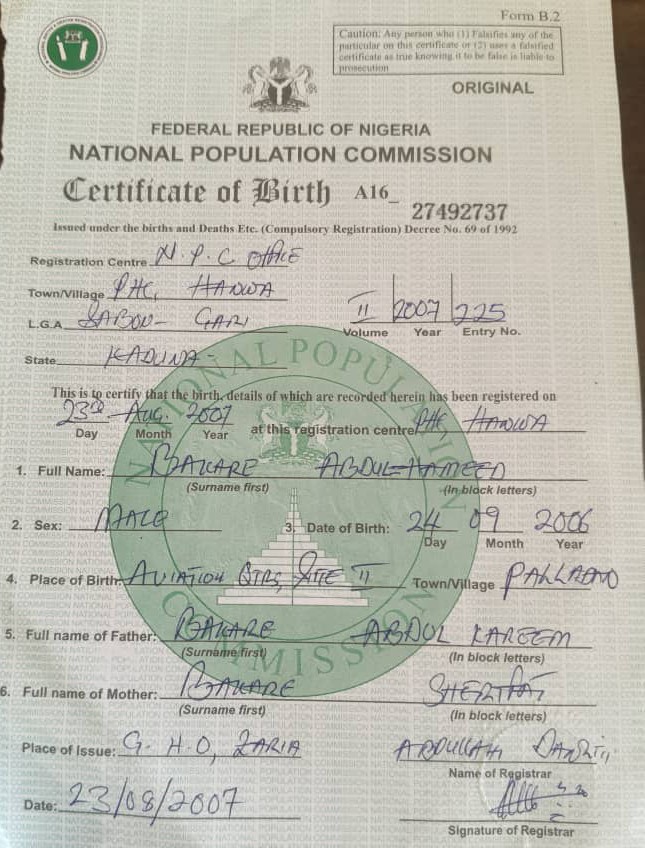 Form B.2
Caution: Any person who (1) Falsifies any of the
particular on this certificate or (2) uses a falsified
certificate as true knowing it to be false is liable to
prosecution
ORIGINAL
FEDERAL REPUBLIC OF NIGERIA
NATIONAL POPULATION COMMISSION
Certificate of Birth A16_ 27492737
Issued under the births and Deaths Etc. (Compulsory Registration) Decree No. 69 of 1992
Registration Centre N.P.C OFFICE
Town/Village PHC, HANWA
L.G.A SABON-GARI
II 2007 225
Volume Year Entry No.
State KADUNA
This is to certify that the birth, details of which are recorded herein has been registered on
23RD AUG. 2007 at this registration centre PHC HANWA
Day Month Year
1. Full Name: BAKARE ABDUL-HAMEED
(Surname first) (In block letters)
2. Sex: MALE 3. Date of Birth: 24 09 2006
Day Month Year
4. Place of Birth: AVIATION QTRS, SITE II Town/Village PALLADAN
5. Full name of Father: BAKARE ABDUL KAREEM
(Surname first) (In block letters)
6. Full name of Mother: BAKARE
(Surname first) (In block letters)
Place of Issue: G.H.O, ZARIA ABDULLAHI
Name of Registrar
Date: 23/08/2007
Signature of Registrar
NATIONAL POPULATION COMMISSION